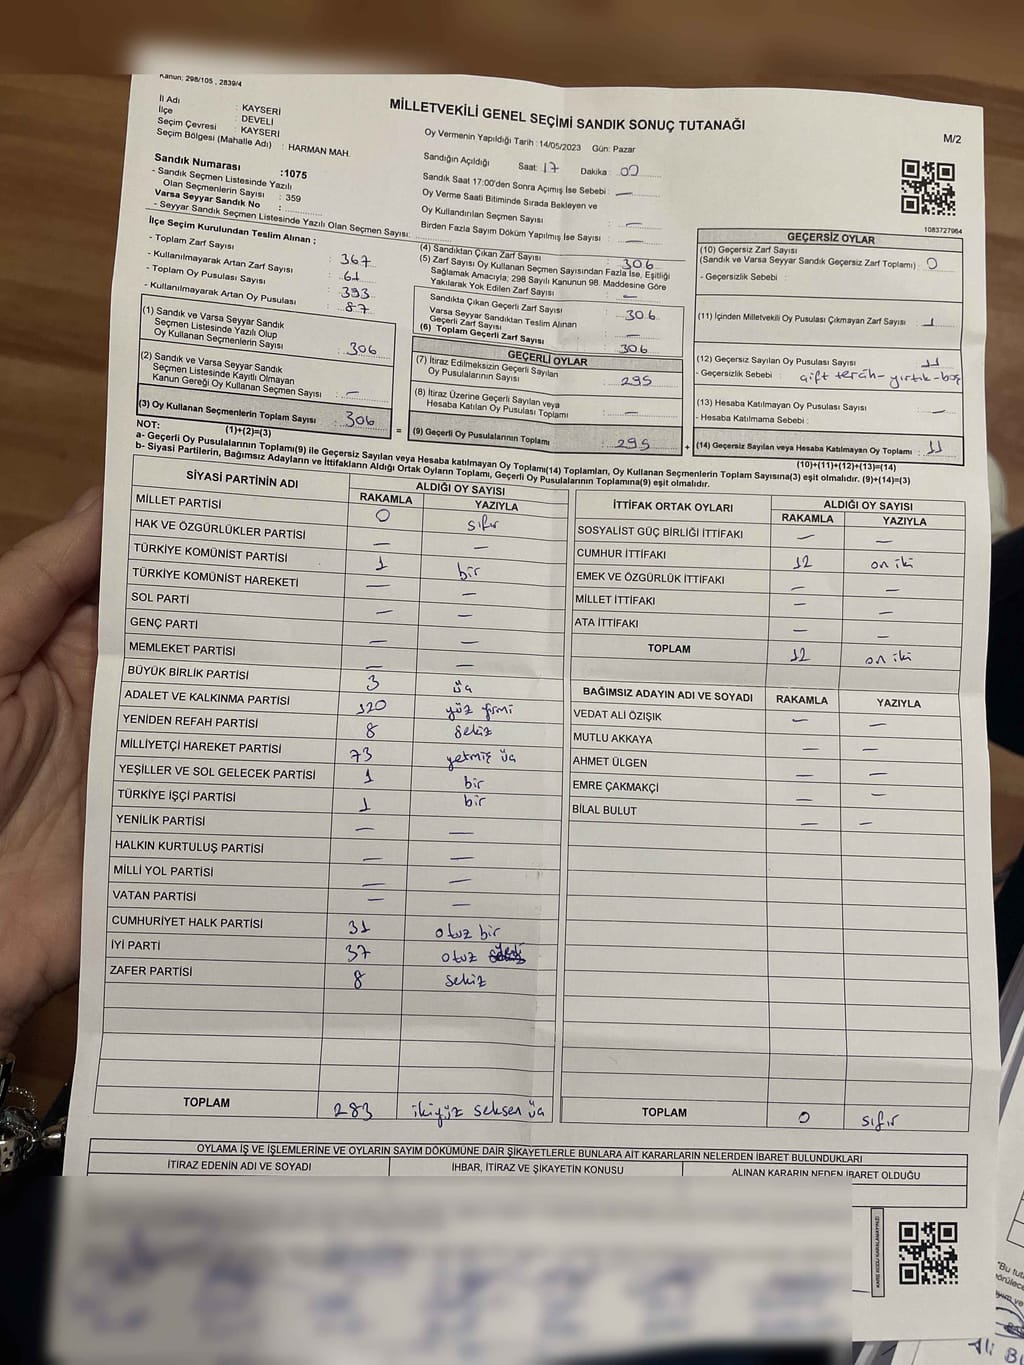 Kanun: 298/105 , 2839/4
MİLLETVEKİLİ GENEL SEÇİMİ SANDIK SONUÇ TUTANAĞI
M/2
İl Adı : KAYSERİ
İlçe : DEVELİ
Seçim Çevresi : KAYSERİ
Seçim Bölgesi (Mahalle Adı) : HARMAN MAH.
Sandık Numarası :1075
- Sandık Seçmen Listesinde Yazılı
Olan Seçmenlerin Sayısı : 359
Varsa Seyyar Sandık No :
- Seyyar Sandık Seçmen Listesinde Yazılı Olan Seçmen Sayısı:
İlçe Seçim Kurulundan Teslim Alınan ;
- Toplam Zarf Sayısı : 367
- Kullanılmayarak Artan Zarf Sayısı : 61
- Toplam Oy Pusulası Sayısı : 393
- Kullanılmayarak Artan Oy Pusulası : 87
(1) Sandık ve Varsa Seyyar Sandık
Seçmen Listesinde Yazılı Olup
Oy Kullanan Seçmenlerin Sayısı : 306
(2) Sandık ve Varsa Seyyar Sandık
Seçmen Listesinde Kayıtlı Olmayan
Kanun Gereği Oy Kullanan Seçmen Sayısı : —
(3) Oy Kullanan Seçmenlerin Toplam Sayısı : 306
(1)+(2)=(3)
Oy Vermenin Yapıldığı Tarih : 14/05/2023 Gün: Pazar
Sandığın Açıldığı Saat: 17 Dakika : 00
Sandık Saat 17:00'den Sonra Açımış İse Sebebi : —
Oy Verme Saati Bitiminde Sırada Bekleyen ve
Oy Kullandırılan Seçmen Sayısı : —
Birden Fazla Sayım Döküm Yapılmış İse Sayısı : —
(4) Sandıktan Çıkan Zarf Sayısı : 306
(5) Zarf Sayısı Oy Kullanan Seçmen Sayısından Fazla İse, Eşitliği
Sağlamak Amacıyla; 298 Sayılı Kanunun 98. Maddesine Göre
Yakılarak Yok Edilen Zarf Sayısı : —
Sandıkta Çıkan Geçerli Zarf Sayısı : 306
Varsa Seyyar Sandıktan Teslim Alınan
Geçerli Zarf Sayısı : —
(6) Toplam Geçerli Zarf Sayısı : 306
GEÇERLİ OYLAR
(7) İtiraz Edilmeksizin Geçerli Sayılan
Oy Pusulalarının Sayısı : 295
(8) İtiraz Üzerine Geçerli Sayılan veya
Hesaba Katılan Oy Pusulası Toplamı : —
= (9) Geçerli Oy Pusulalarının Toplamı : 295 +
1083727964
GEÇERSİZ OYLAR
(10) Geçersiz Zarf Sayısı
(Sandık ve Varsa Seyyar Sandık Geçersiz Zarf Toplamı) : 0
- Geçersizlik Sebebi :
(11) İçinden Milletvekili Oy Pusulası Çıkmayan Zarf Sayısı : 1
(12) Geçersiz Sayılan Oy Pusulası Sayısı : 11
- Geçersizlik Sebebi : çift tercih- yırtık- boş
(13) Hesaba Katılmayan Oy Pusulası Sayısı : —
- Hesaba Katılmama Sebebi :
(14) Geçersiz Sayılan veya Hesaba Katılmayan Oy Toplamı : 11
(10)+(11)+(12)+(13)=(14)
NOT:
a- Geçerli Oy Pusulalarının Toplamı(9) ile Geçersiz Sayılan veya Hesaba katılmayan Oy Toplamı(14) Toplamları, Oy Kullanan Seçmenlerin Toplam Sayısına(3) eşit olmalıdır. (9)+(14)=(3)
b- Siyasi Partilerin, Bağımsız Adayların ve İttifakların Aldığı Ortak Oyların Toplamı, Geçerli Oy Pusulalarının Toplamına(9) eşit olmalıdır.
SİYASİ PARTİNİN ADI ALDIĞI OY SAYISI
RAKAMLA YAZIYLA
MİLLET PARTİSİ 0 sıfır
HAK VE ÖZGÜRLÜKLER PARTİSİ — —
TÜRKİYE KOMÜNİST PARTİSİ 1 bir
TÜRKİYE KOMÜNİST HAREKETİ — —
SOL PARTİ — —
GENÇ PARTİ — —
MEMLEKET PARTİSİ — —
BÜYÜK BİRLİK PARTİSİ 3 üç
ADALET VE KALKINMA PARTİSİ 120 yüz yirmi
YENİDEN REFAH PARTİSİ 8 sekiz
MİLLİYETÇİ HAREKET PARTİSİ 73 yetmiş üç
YEŞİLLER VE SOL GELECEK PARTİSİ 1 bir
TÜRKİYE İŞÇİ PARTİSİ 1 bir
YENİLİK PARTİSİ — —
HALKIN KURTULUŞ PARTİSİ — —
MİLLİ YOL PARTİSİ — —
VATAN PARTİSİ — —
CUMHURİYET HALK PARTİSİ 31 otuz bir
İYİ PARTİ 37 otuz yedi
ZAFER PARTİSİ 8 sekiz
TOPLAM 283 ikiyüz seksen üç
İTTİFAK ORTAK OYLARI ALDIĞI OY SAYISI
RAKAMLA YAZIYLA
SOSYALİST GÜÇ BİRLİĞİ İTTİFAKI — —
CUMHUR İTTİFAKI 12 on iki
EMEK VE ÖZGÜRLÜK İTTİFAKI — —
MİLLET İTTİFAKI — —
ATA İTTİFAKI — —
TOPLAM 12 on iki
BAĞIMSIZ ADAYIN ADI VE SOYADI RAKAMLA YAZIYLA
VEDAT ALİ ÖZIŞIK — —
MUTLU AKKAYA — —
AHMET ÜLGEN — —
EMRE ÇAKMAKÇİ — —
BİLAL BULUT — —
TOPLAM 0 sıfır
OYLAMA İŞ VE İŞLEMLERİNE VE OYLARIN SAYIM DÖKÜMÜNE DAİR ŞİKAYETLERLE BUNLARA AİT KARARLARIN NELERDEN İBARET BULUNDUKLARI
İTİRAZ EDENİN ADI VE SOYADI İHBAR, İTİRAZ VE ŞİKAYETİN KONUSU ALINAN KARARIN NEDEN İBARET OLDUĞU
KARE KODU KARALAMAYINIZ!
"Bu tut